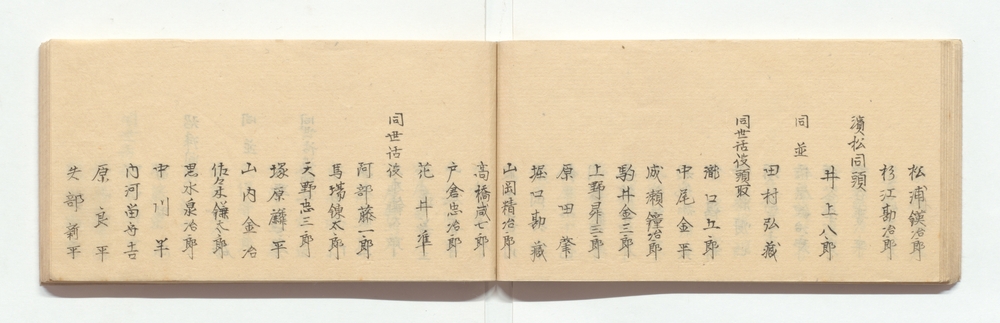 松浦鎮治郎
杉江勘治郎
濱松同頭
井上八郎
同並
田村弘蔵
同世話役頭取
瀧口丘郎
中尾金平
成瀬鐘治郎
駒井金三郎
上野昇三郎
原田肇
堀口勘蔵
山岡精治郎
高橋咸七郎
戸倉忠治郎
花井準
同世話役
阿部藤一郎
馬場錬太郎
天野忠三郎
塚原麟平
山内金治
佐々木鎌太郎
黒水泉治郎
中川半
内河尚寿吉
原良平
失部新平